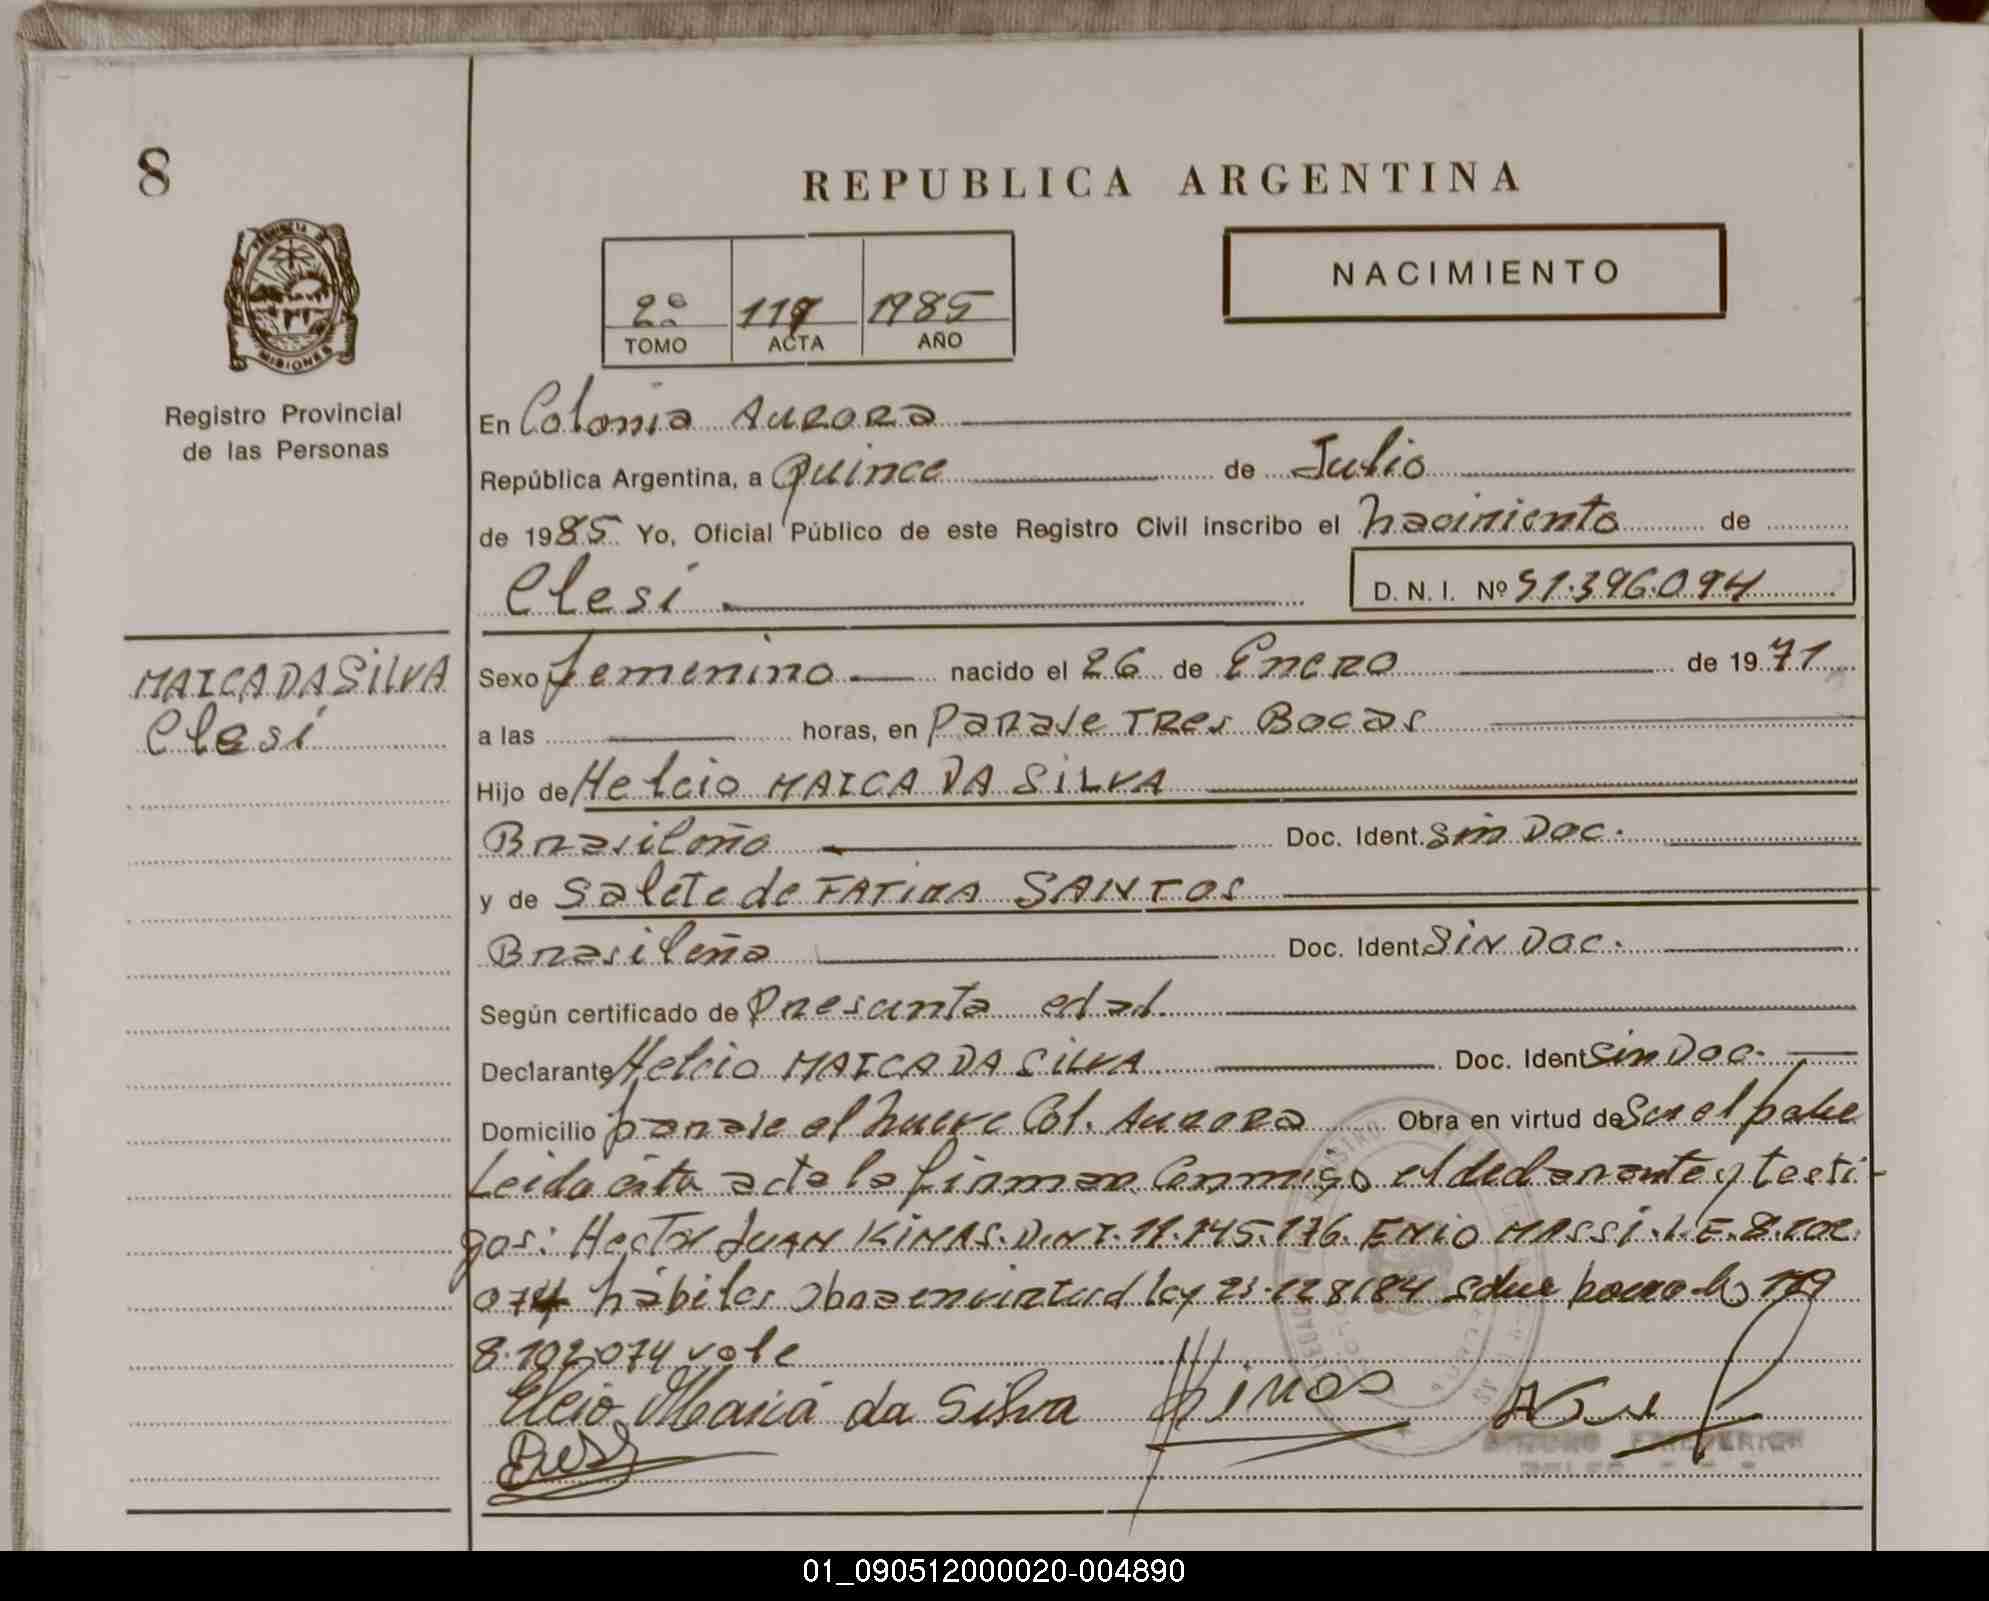 8
REPUBLICA ARGENTINA
NACIMIENTO
2º 117 1985
TOMO ACTA AÑO
PROVINCIA DE
MISIONES
Registro Provincial
de las Personas
En Colonia Aurora
República Argentina, a Quince de Julio
de 1985 Yo, Oficial Público de este Registro Civil inscribo el nacimiento de
Clesi D. N. I. Nº 91.396.094
MAICA DA SILVA
Clesi
Sexo femenino nacido el 26 de Enero de 1971
a las horas, en Paraje Tres Bocas
Hijo de Helcio MAICA DA SILVA
Brasileño Doc. Ident. Sin Doc.
y de Salete de FATIMA SANTOS
Brasileña Doc. Ident. SIN DOC.
Según certificado de Presunta edad.
Declarante Helcio MAICA DA SILVA Doc. Ident. Sin Doc.
Domicilio paraje el nueve Col. Aurora Obra en virtud de Ser el padre
Leida ésta acta la firman Conmigo el declarante y testi-
gos: Hector JUAN KINAS. D.N.I. 11.745.176. ENIO MASSI. L.E. 8.102.
074 hábiles Obra en virtud ley 23.128/84
8.102.074 vale
Elcio Maicá da Silva Kinas